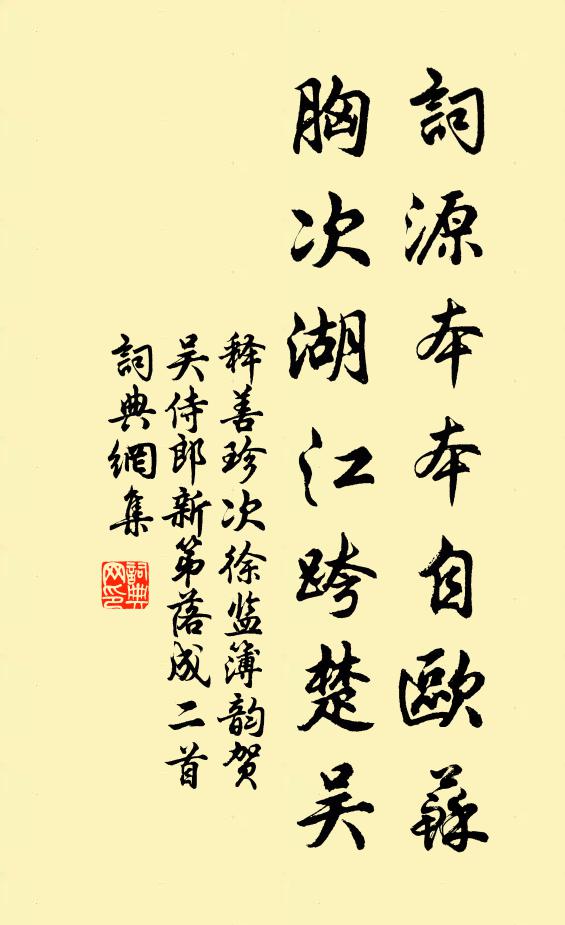 詞源本本自歐蘇
胸次湖江跨楚吴
释善珍次徐监簿韵贺
吴侍郎新第落成二首
詞典網集
詞典网印